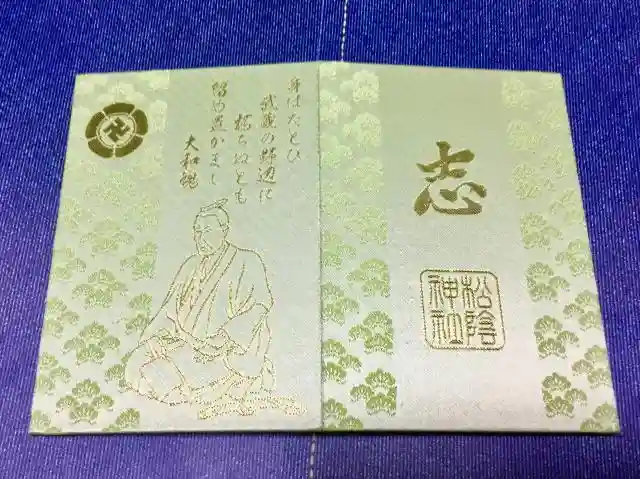 志
松陰
神社
身はたとひ
武蔵の野辺に
朽ちぬとも
留め置かまし
大和魂